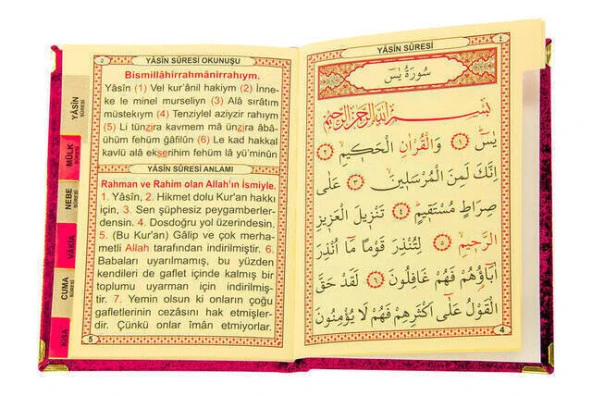 YÂSÎN SÛRESİ OKUNUŞU
Bismillâhirrahmânirrahıym.
Yâsîn (1) Vel kur'ânil hakiym (2) İnne-
ke le minel murseliyn (3) Alâ sırâtım
müstekıym (4) Tenziylel aziyzir rahıym
(5) Li tünzira kavmem mâ ünzira âbâ-
ühüm fehüm ğâfilûn (6) Le kad hakkal
kavlü alâ ekserihim fehüm lâ yü'minûn
YÂSÎN SÛRESİ ANLAMI
Rahman ve Rahim olan Allah'ın İsmiyle.
1. Yâsîn, 2. Hikmet dolu Kur'an hakkı
için, 3. Sen şüphesiz peygamberler-
densin. 4. Dosdoğru yol üzerindesin.
5. (Bu Kur'an) Gâlip ve çok merha-
metli Allah tarafından indirilmiştir. 6.
Babaları uyarılmamış, bu yüzden
kendileri de gaflet içinde kalmış bir
toplumu uyarman için indirilmiş-
tir. 7. Yemin olsun ki onların çoğu
gafletlerinin cezasını hak etmişler-
dir. Çünkü onlar îmân etmiyorlar.
5
YÂSÎN SÛRESİ
MÜLK SÛRESİ
NEBE SÛRESİ
VÂKIA
CUMA SÛRESİ
KISA
YÂSİN SÛRESİ
سُورَةُ يٰسٓ
بِسْمِ اللّٰهِ الرَّحْمٰنِ الرَّحِيمِ
يٰسٓ ﴿١﴾ وَالْقُرْاٰنِ الْحَكِيمِ ﴿٢﴾
اِنَّكَ لَمِنَ الْمُرْسَلِينَ ﴿٣﴾ عَلٰى
صِرَاطٍ مُسْتَقِيمٍ ﴿٤﴾ تَنْزِيلَ الْعَزِيزِ
الرَّحِيمِ ﴿٥﴾ لِتُنْذِرَ قَوْمًا مَٓا اُنْذِرَ
اٰبَٓاؤُهُمْ فَهُمْ غَافِلُونَ ﴿٦﴾ لَقَدْ حَقَّ
الْقَوْلُ عَلٰٓى اَكْثَرِهِمْ فَهُمْ لَا يُؤْمِنُونَ
4